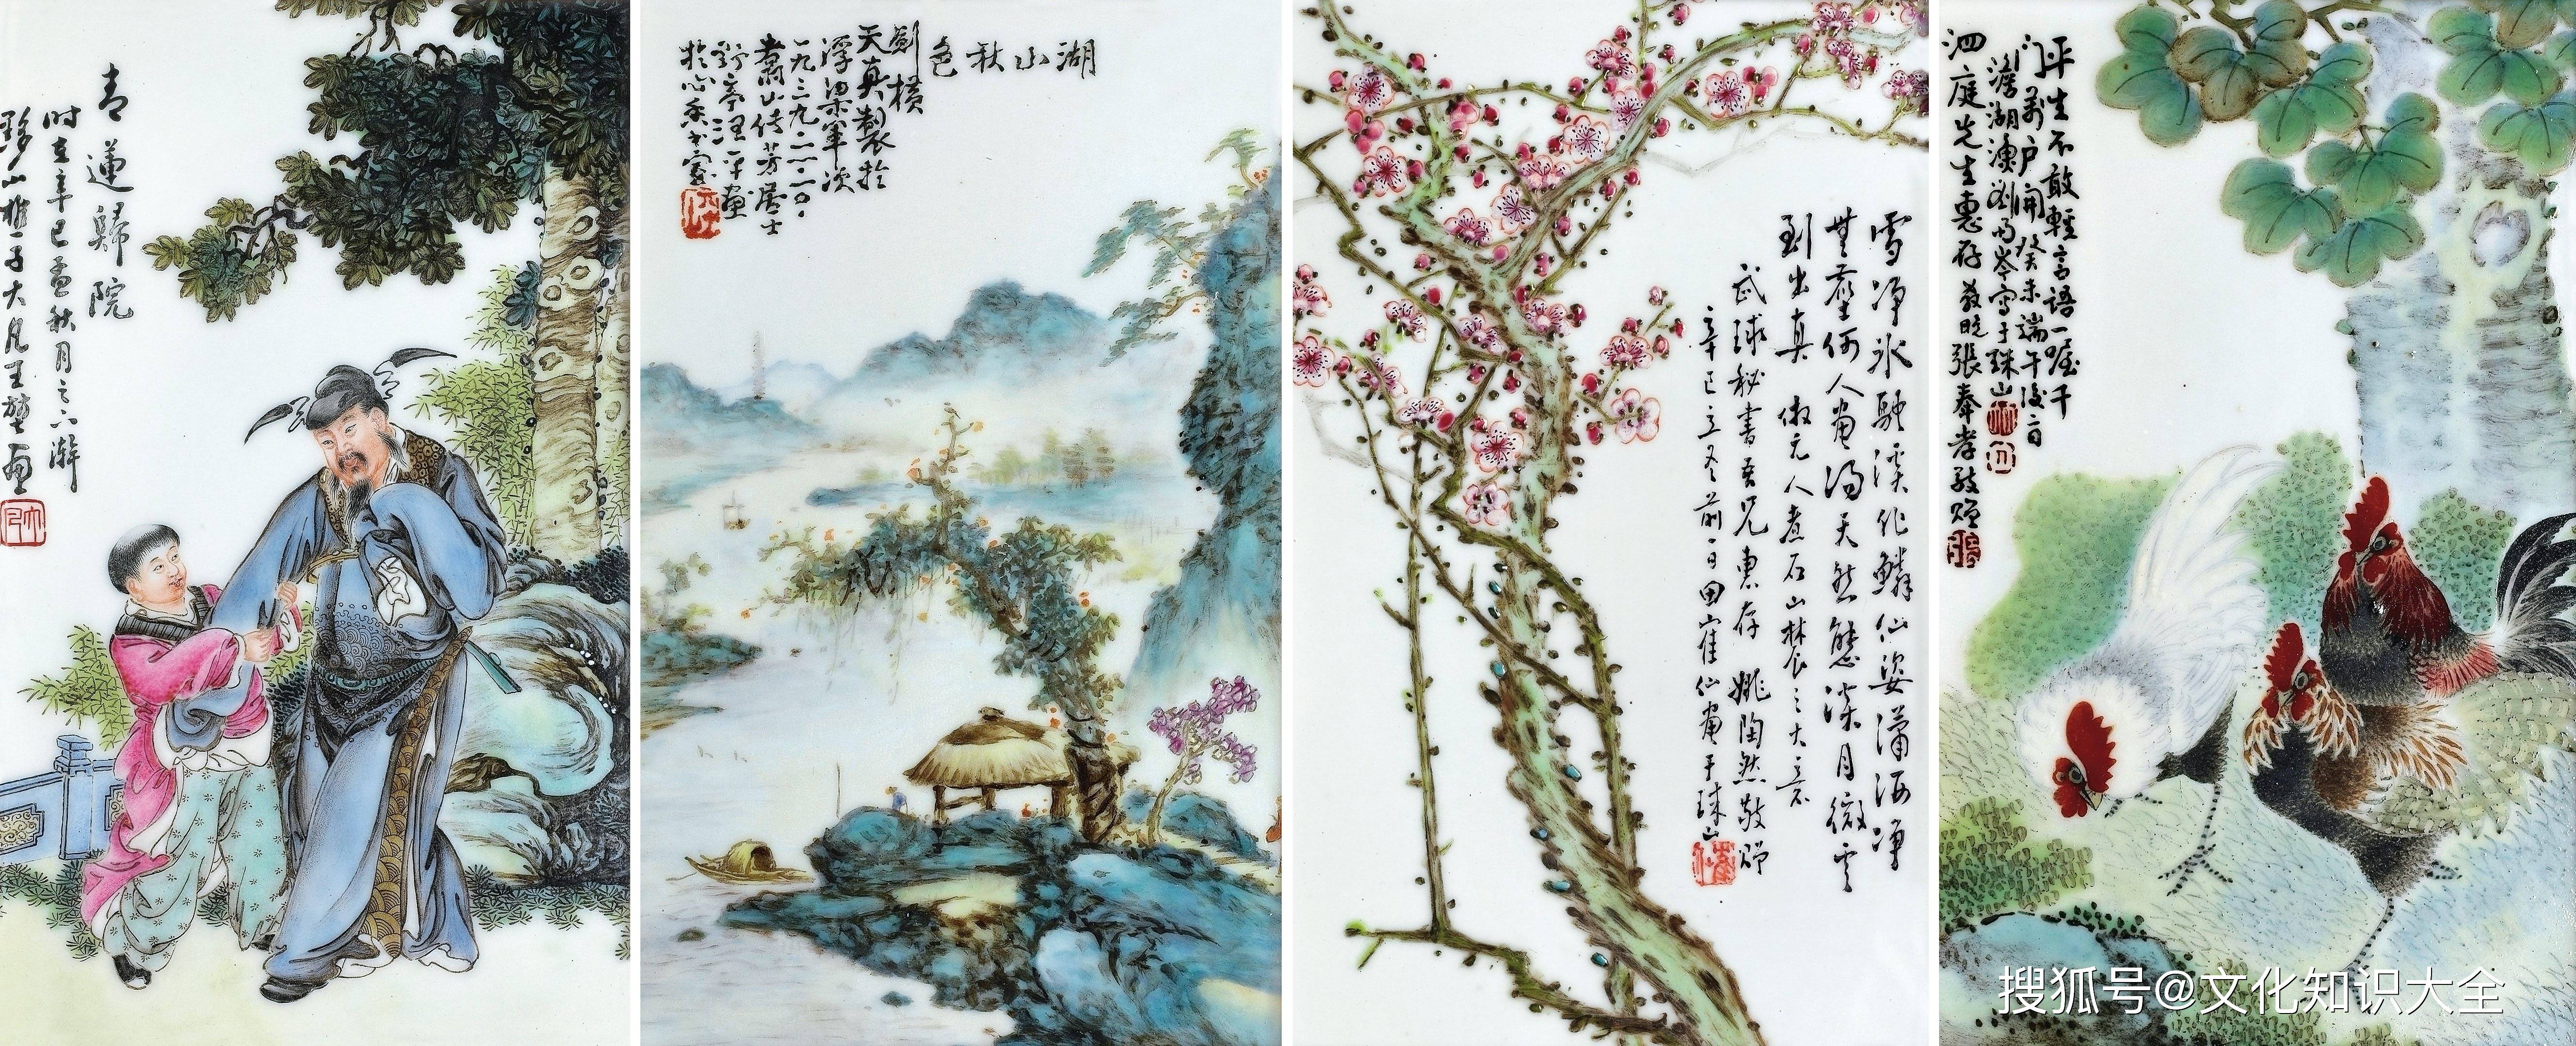 青蓮歸院
時在辛巳孟秋月之六澣
黟山樵子大凡王堃畫
湖山秋色
劍橫
天真製於
浮梁軍次
一九三九、一二、一〇、
蕭山傳芳居士
野亭汪平畫
於心香書室
雪淨冰融溪作鱗仙姿瀟洒凈
無塵何人畫得天然態淡月微雲
到出真 倣元人煮石山農之大意
武球秘書吾兄惠存 姚陶然敬贈
辛巳立冬前一日田鶴仙畫于珠山
平生不敢輕言語一喔千
門萬戶開 癸未端午後二日
澹湖漁劉雨岑寫于珠山
泗庭先生惠存 教晚張奉孝敬贈
搜狐号@文化知识大全